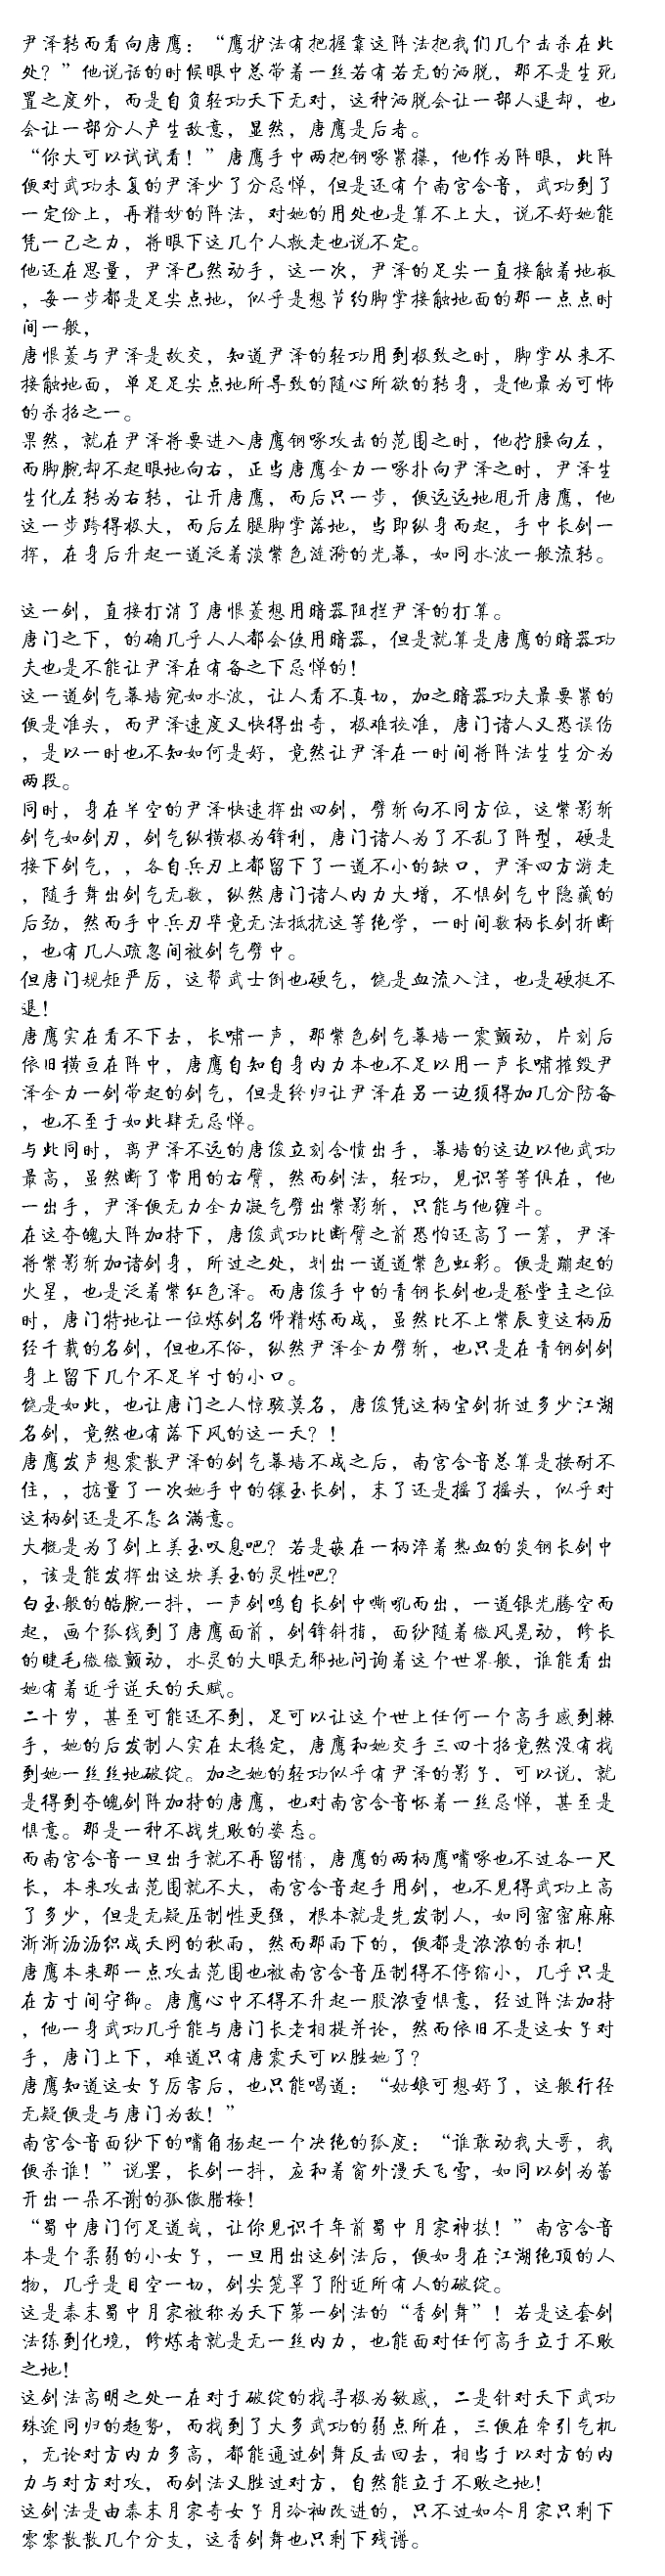 尹泽转而看向唐鹰：“鹰护法有把握靠这阵法把我们几个击杀在此
处？”他说话的时候眼中总带着一丝若有若无的洒脱，那不是生死
置之度外，而是自负轻功天下无对，这种洒脱会让一部人退却，也
会让一部分人产生敌意，显然，唐鹰是后者。
“你大可以试试看！”唐鹰手中两把钢啄紧握，他作为阵眼，此阵
便对武功未复的尹泽少了分忌惮，但是还有个南宫含音，武功到了
一定份上，再精妙的阵法，对她的用处也是算不上大，说不好她能
凭一己之力，将眼下这几个人救走也说不定。
他还在思量，尹泽已然动手，这一次，尹泽的足尖一直接触着地板
，每一步都是足尖点地，似乎是想节约脚掌接触地面的那一点点时
间一般，
唐恨菱与尹泽是故交，知道尹泽的轻功用到极致之时，脚掌从来不
接触地面，单足足尖点地所导致的随心所欲的转身，是他最为可怖
的杀招之一。
果然，就在尹泽将要进入唐鹰钢啄攻击的范围之时，他拧腰向左，
而脚腕却不起眼地向右，正当唐鹰全力一啄扑向尹泽之时，尹泽生
生化左转为右转，让开唐鹰，而后只一步，便远远地甩开唐鹰，他
这一步跨得极大，而后左腿脚掌落地，当即纵身而起，手中长剑一
挥，在身后升起一道泛着淡紫色涟漪的光幕，如同水波一般流转。
这一剑，直接打消了唐恨菱想用暗器阻拦尹泽的打算。
唐门之下，的确几乎人人都会使用暗器，但是就算是唐鹰的暗器功
夫也是不能让尹泽在有备之下忌惮的！
这一道剑气幕墙宛如水波，让人看不真切，加之暗器功夫最要紧的
便是准头，而尹泽速度又快得出奇，极难校准，唐门诸人又恐误伤
，是以一时也不知如何是好，竟然让尹泽在一时间将阵法生生分为
两段。
同时，身在半空的尹泽快速挥出四剑，劈斩向不同方位，这紫影斩
剑气如剑刃，剑气纵横极为锋利，唐门诸人为了不乱了阵型，硬是
接下剑气，，各自兵刃上都留下了一道不小的缺口，尹泽四方游走
，随手舞出剑气无数，纵然唐门诸人内力大增，不惧剑气中隐藏的
后劲，然而手中兵刃毕竟无法抵抗这等绝学，一时间数柄长剑折断
，也有几人疏忽间被剑气劈中。
但唐门规矩严厉，这帮武士倒也硬气，饶是血流入注，也是硬挺不
退！
唐鹰实在看不下去，长啸一声，那紫色剑气幕墙一震颤动，片刻后
依旧横亘在阵中，唐鹰自知自身内力本也不足以用一声长啸摧毁尹
泽全力一剑带起的剑气，但是终归让尹泽在另一边须得加几分防备
，也不至于如此肆无忌惮。
与此同时，离尹泽不远的唐俊立刻含愤出手，幕墙的这边以他武功
最高，虽然断了常用的右臂，然而剑法，轻功，见识等等俱在，他
一出手，尹泽便无力全力凝气劈出紫影斩，只能与他缠斗。
在这夺魄大阵加持下，唐俊武功比断臂之前恐怕还高了一筹，尹泽
将紫影斩加诸剑身，所过之处，划出一道道紫色虹彩。便是蹦起的
火星，也是泛着紫红色泽。而唐俊手中的青钢长剑也是登堂主之位
时，唐门特地让一位炼剑名师精炼而成，虽然比不上紫辰变这柄历
经千载的名剑，但也不俗，纵然尹泽全力劈斩，也只是在青钢剑剑
身上留下几个不足半寸的小口。
饶是如此，也让唐门之人惊骇莫名，唐俊凭这柄宝剑折过多少江湖
名剑，竟然也有落下风的这一天？！
唐鹰发声想震散尹泽的剑气幕墙不成之后，南宫含音总算是按耐不
住，，掂量了一次她手中的镶玉长剑，末了还是摇了摇头，似乎对
这柄剑还是不怎么满意。
大概是为了剑上美玉叹息吧？若是嵌在一柄淬着热血的炎钢长剑中
，该是能发挥出这块美玉的灵性吧？
白玉般的皓腕一抖，一声剑鸣自长剑中嘶吼而出，一道银光腾空而
起，画个弧线到了唐鹰面前，剑锋斜指，面纱随着微风晃动，修长
的睫毛微微颤动，水灵的大眼无邪地问询着这个世界般，谁能看出
她有着近乎逆天的天赋。
二十岁，甚至可能还不到，足可以让这个世上任何一个高手感到棘
手，她的后发制人实在太稳定，唐鹰和她交手三四十招竟然没有找
到她一丝丝地破绽。加之她的轻功似乎有尹泽的影子，可以说，就
是得到夺魄剑阵加持的唐鹰，也对南宫含音怀着一丝忌惮，甚至是
惧意。那是一种不战先败的姿态。
而南宫含音一旦出手就不再留情，唐鹰的两柄鹰嘴啄也不过各一尺
长，本来攻击范围就不大，南宫含音起手用剑，也不见得武功上高
了多少，但是无疑压制性更强，根本就是先发制人，如同密密麻麻
淅淅沥沥织成天网的秋雨，然而那雨下的，便都是浓浓的杀机！
唐鹰本来那一点攻击范围也被南宫含音压制得不停缩小，几乎只是
在方寸间守御。唐鹰心中不得不升起一股浓重惧意，经过阵法加持
，他一身武功几乎能与唐门长老相提并论，然而依旧不是这女子对
手，唐门上下，难道只有唐震天可以胜她了？
唐鹰知道这女子厉害后，也只能喝道：“姑娘可想好了，这般行径
无疑便是与唐门为敌！”
南宫含音面纱下的嘴角扬起一个决绝的弧度：“谁敢动我大哥，我
便杀谁！”说罢，长剑一抖，应和着窗外漫天飞雪，如同以剑为蕾
开出一朵不谢的孤傲腊梅！
“蜀中唐门何足道哉，让你见识千年前蜀中月家神技！”南宫含音
本是个柔弱的小女子，一旦用出这剑法后，便如身在江湖绝顶的人
物，几乎是目空一切，剑尖笼罩了附近所有人的破绽。
这是秦末蜀中月家被称为天下第一剑法的“香剑舞”！若是这套剑
法练到化境，修炼者就是无一丝内力，也能面对任何高手立于不败
之地！
这剑法高明之处一在对于破绽的找寻极为敏感，二是针对天下武功
殊途同归的趋势，而找到了大多武功的弱点所在，三便在牵引气机
，无论对方内力多高，都能通过剑舞反击回去，相当于以对方的内
力与对方对攻，而剑法又胜过对方，自然能立于不败之地！
这剑法是由秦末月家奇女子月泠袖改进的，只不过如今月家只剩下
零零散散几个分支，这香剑舞也只剩下残谱。